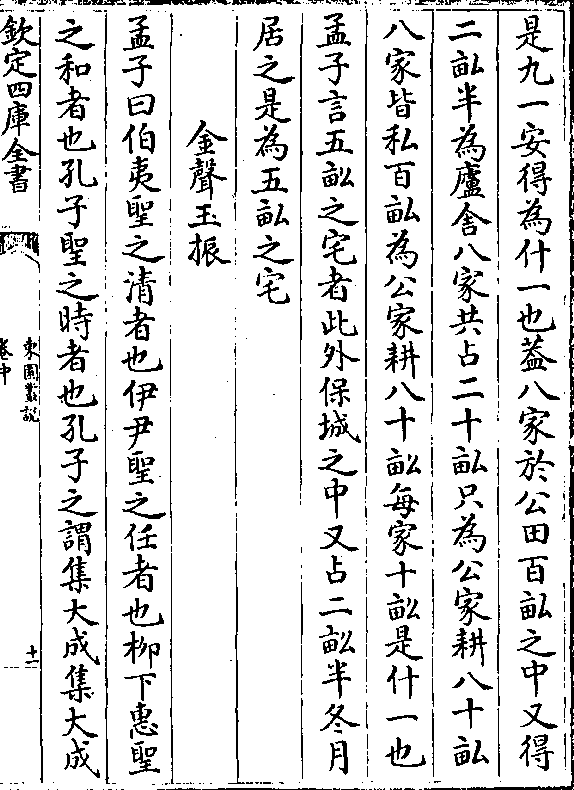 是九一安得為什一也葢八家於公田百畝之中又得
二畝半為廬舍八家共占二十畝只為公家耕八十畝
八家皆私百畝為公家耕八十畝每家十畝是什一也
孟子言五畝之宅者此外保城之中又占二畝半冬月
居之是為五畝之宅
金聲玉振
孟子曰伯夷聖之清者也伊尹聖之任者也柳下惠聖
之和者也孔子聖之時者也孔子之謂集大成集大成
欽定四庫全書
東園叢説
卷中
十一